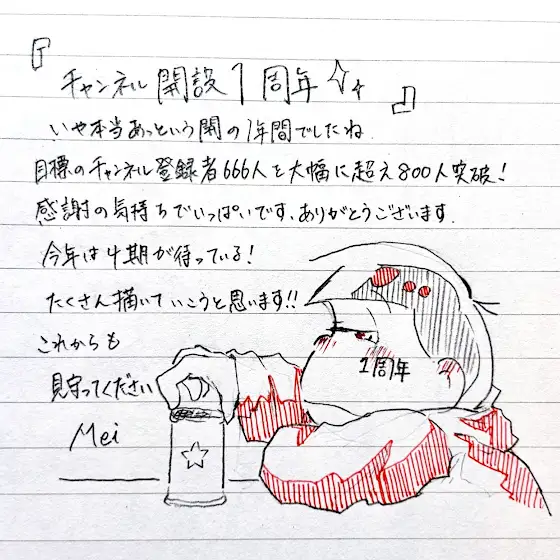 『チャンネル開設1周年』
いや本当あっという間の1年間でしたね
目標のチャンネル登録者666人を大幅に超え800人突破!
感謝の気持ちでいっぱいです、ありがとうございます.
今年は4期が待っている!
たくさん描いていこうと思います!!
これからも
見守ってください
Mei
1周年